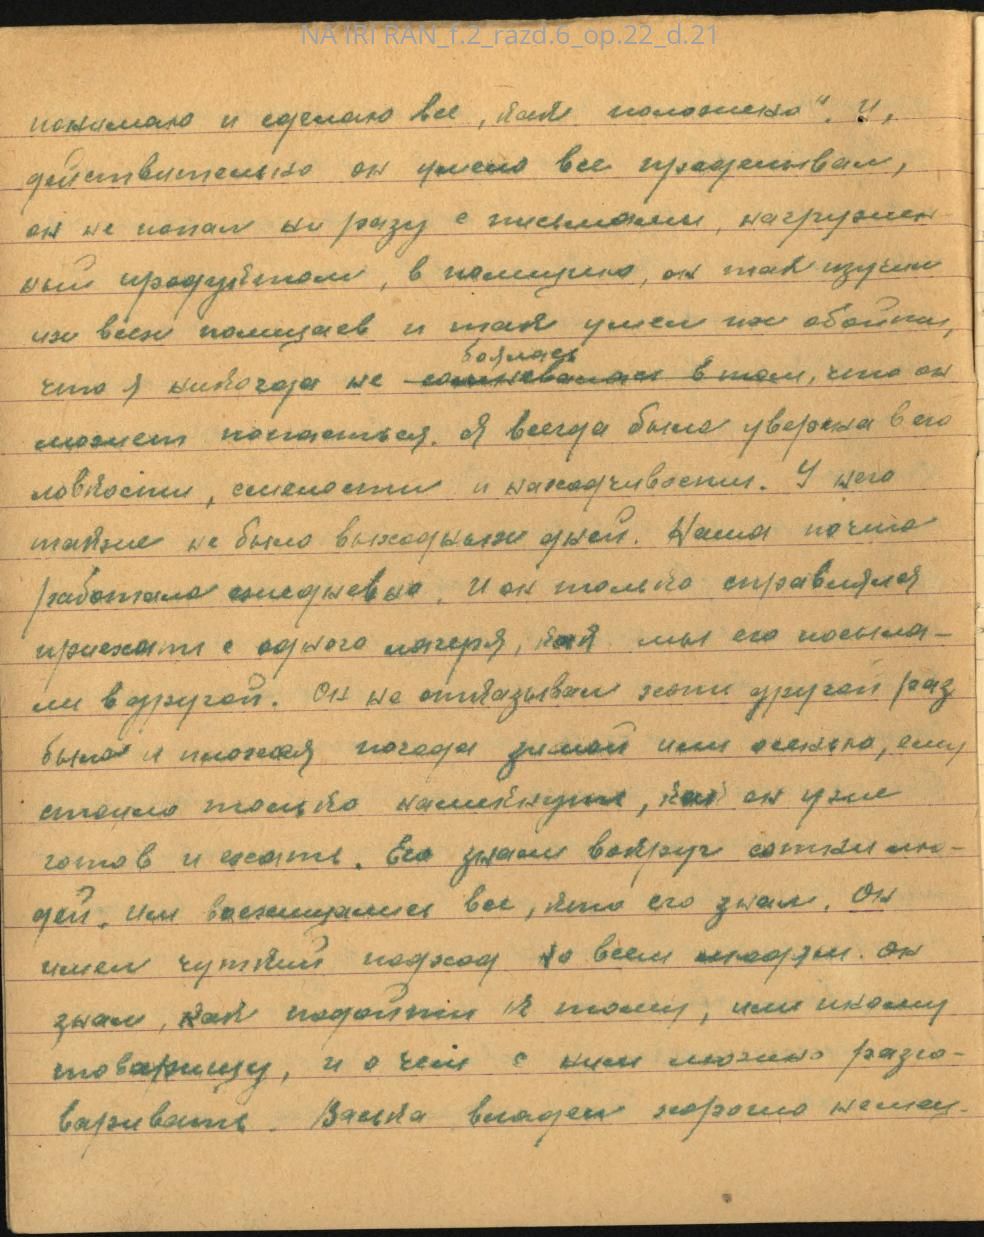 NA IRI RAN_f.2_razd.6_op.22_d.21
понимаю и сделаю все „как положено“. И,
действительно он умело все проделывал,
он не попал ни разу с письмами, нагружен-
ный продуктом, в полицию, он так изучил
их всех полицаев и так умел их обойти,
боялась
что я никогда не сомневалась в том, что он
может попасться. Я всегда была уверена в его
ловкости, смелости и находчивости. У него
также не было выходных дней. Наша почта
работала ежедневно. И он только справлялся
приехать с одного лагеря, как мы его посыла-
ли в другой. Он не отказывал хоть другой раз
была и плохая погода зимой или осенью, ему
стоило только намекнуть, как он уже
готов и ехать. Его знали вокруг сотни лю-
дей. Им восхищались все, кто его знал. Он
имел чуткий подход ко всем людям. Он
знал, как подойти к тому, или иному
товарищу, и о чем с ним можно разго-
варивать. Васька владел хорошо немец-